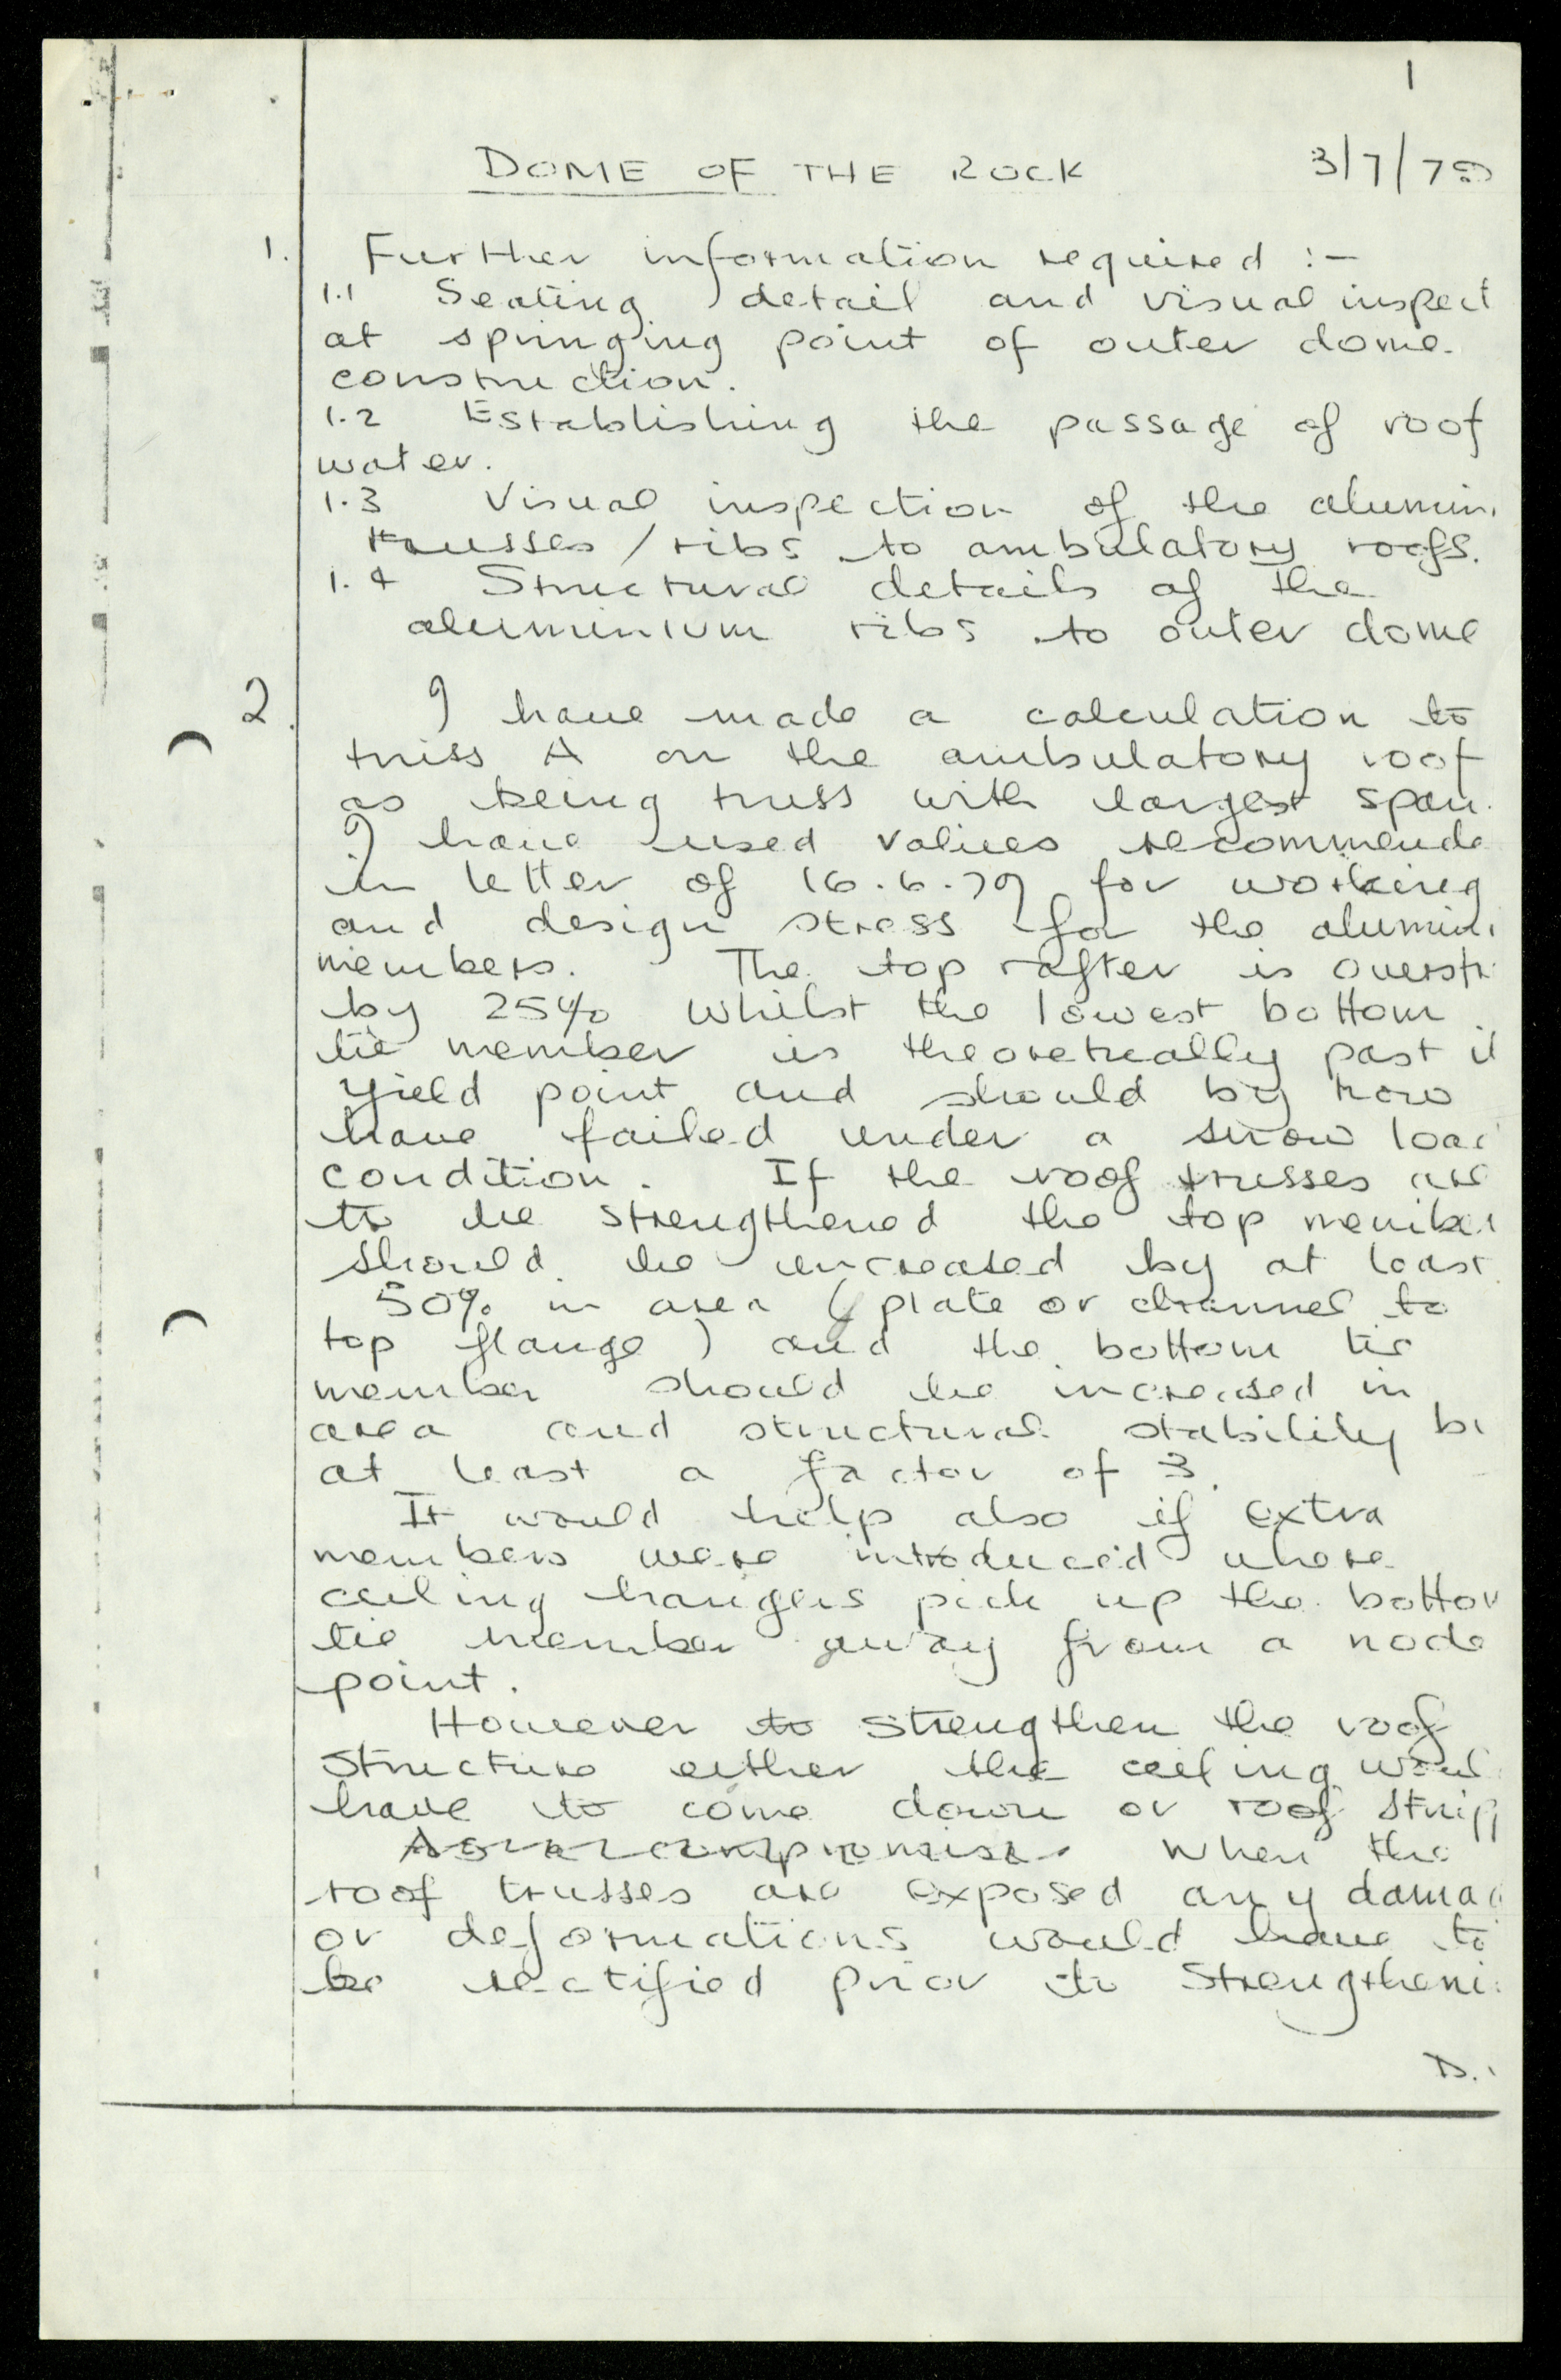 1
DOME OF THE ROCK 3/7/79
1. Further information required :-
1.1 Seating detail and visual inspect
at springing point of outer dome
construction.
1.2 Establishing the passage of roof
water.
1.3 Visual inspection of the alumini
trusses / ribs to ambulatory roofs.
1.4 Structural details of the
aluminium ribs to outer dome
2. I have made a calculation to
truss A on the ambulatory roof
as being truss with largest span.
I have used values recommende
in letter of 16.6.79 for working
and design stress for the alumini
members. The top rafter is overstr
by 25% whilst the lowest bottom
tie member is theoretically past it
yield point and should by now
have failed under a snow load
condition. If the roof trusses are
to be strengthened the top member
should be increased by at least
50% in area ( plate or channel to
top flange ) and the bottom tie
member should be increased in
area and structural stability by
at least a factor of 3.
It would help also if extra
members were introduced where
ceiling hangers pick up the bottom
tie member away from a node
point.
However to strengthen the roof
structure either the ceiling woul
have to come down or roof stripp
As a compromise. When the
roof trusses are exposed any damag
or deformations would have to
be rectified prior to strengtheni
D.